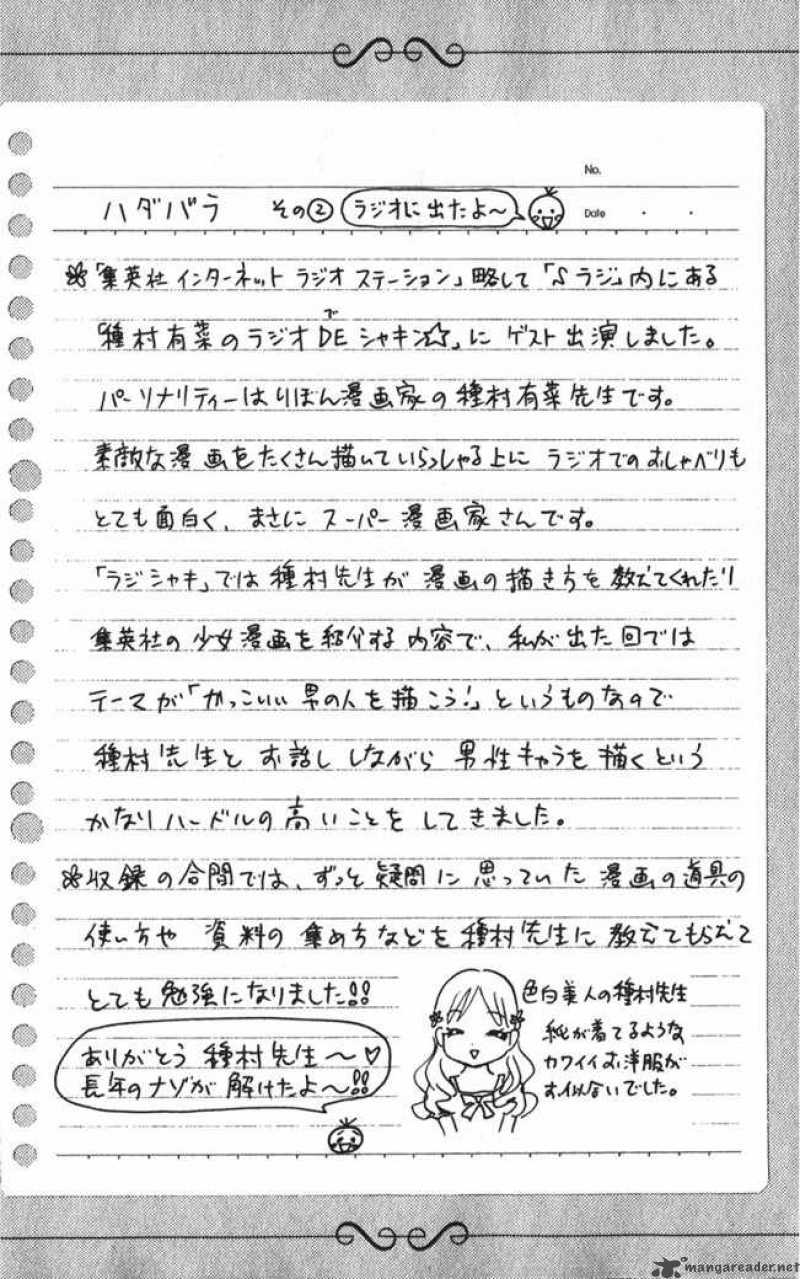 No.
ハダバラ その② ラジオに出たよ〜
Date ・ ・
「集英社インターネットラジオステーション」略して「Sラジ」内にある
「種村有菜のラジオDEシャキン☆」に ゲスト出演しました。
で
パーソナリティーはりぼん漫画家の種村有菜先生です。
素敵な漫画をたくさん描いていらっしゃる上に ラジオでのおしゃべりも
とても面白く、まさに スーパー漫画家さんです。
「ラジシャキ」では種村先生が漫画の描き方を教えてくれたり
集英社の少女漫画を紹介する内容で、私が出た回では
テーマが「かっこいい男の人を描こう!」というものなので
種村先生と お話ししながら 男性キャラを描くという
かなりハードルの高いことをしてきました。
収録の合間では、ずっと疑問に思っていた漫画の道具の
使い方や 資料の集め方などを種村先生に教えてもらえて
とても勉強になりました!!
ありがとう 種村先生〜♡
長年のナゾが解けたよ〜!!
色白美人の種村先生
私が着てるような
カワイイお洋服が
お似合いでした。
mangareader.net